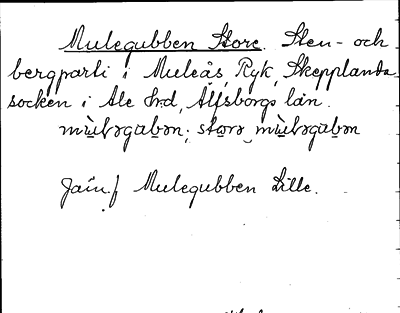 Mulegubben Store. Sten- och
bergparti i Muleås, Ryk, Skepplanda
socken i Ale hrd, Älfsborgs län.
Jämf Mulegubben Lille.